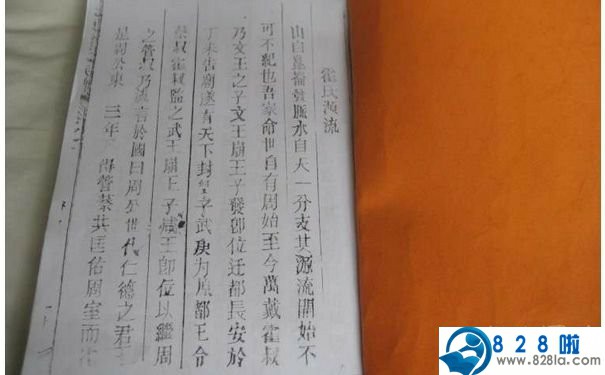 霍氏源流
山自崑崙發脈水自天一分支其源流開始不
可不紀也吾家命世自有周始至今萬載霍叔
乃文王之子文王崩王子發即位迁都長安於
丁未吉朝遂有天下封子武庚为原都王令
蔡叔霍叔監之武王崩王子成王即位以繼周
之管叔乃流言於國曰周公世代仁德之君王
是周公東三年得管蔡共匡佑周室而
828啦
www.828la.com